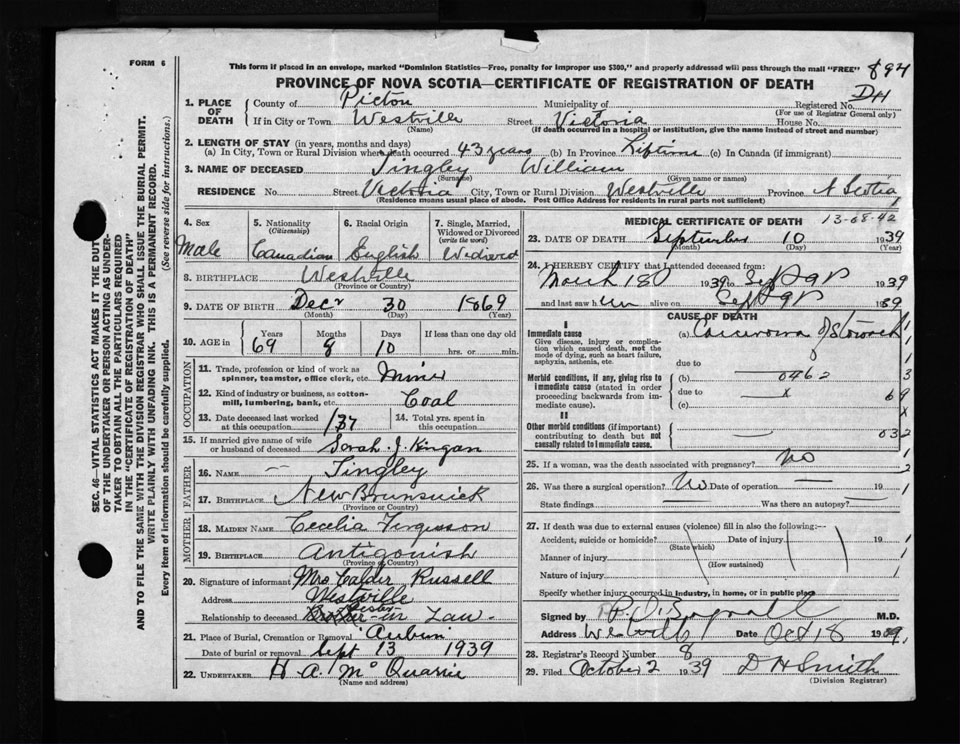 FORM 6
This form if placed in an envelope, marked "Dominion Statistics—Free, penalty for improper use $300," and properly addressed will pass through the mail "FREE" 894
PROVINCE OF NOVA SCOTIA—CERTIFICATE OF REGISTRATION OF DEATH
DH
1. PLACE OF DEATH
County of Pictou Municipality of Registered No.
(For use of Registrar General only)
If in City or Town Westville Street Victoria House No.
(Name) (If death occurred in a hospital or institution, give the name instead of street and number)
2. LENGTH OF STAY (in years, months and days)
(a) In City, Town or Rural Division where death occurred 43 years (b) In Province Lifetime (c) In Canada (if immigrant)
3. NAME OF DECEASED Tingley William
(Surname) (Given name or names)
RESIDENCE No. Street Victoria City, Town or Rural Division Westville Province N Scotia
(Residence means usual place of abode. Post Office Address for residents in rural parts not sufficient)
SEC. 46—VITAL STATISTICS ACT MAKES IT THE DUTY
OF THE UNDERTAKER OR PERSON ACTING AS UNDER-
TAKER TO OBTAIN ALL THE PARTICULARS REQUIRED
IN THE "CERTIFICATE OF REGISTRATION OF DEATH"
AND TO FILE THE SAME WITH THE DIVISION REGISTRAR WHO SHALL ISSUE THE BURIAL PERMIT.
WRITE PLAINLY WITH UNFADING INK. THIS IS A PERMANENT RECORD.
Every item of information should be carefully supplied. (See reverse side for instructions.)
4. Sex
Male
5. Nationality
(Citizenship)
Canadian
6. Racial Origin
English
7. Single, Married,
Widowed or Divorced
(write the word)
8. BIRTHPLACE Westville
(Province or Country)
9. DATE OF BIRTH Decr 30 1869
(Month) (Day) (Year)
10. AGE in
Years Months Days If less than one day old
69 8 10 hrs. or min.
OCCUPATION
11. Trade, profession or kind of work as
spinner, teamster, office clerk, etc. Miner
12. Kind of industry or business, as cotton-
mill, lumbering, bank, etc. Coal
13. Date deceased last worked
at this occupation
14. Total yrs. spent in
this occupation
15. If married give name of wife
or husband of deceased Sarah J. Kingan
FATHER
16. NAME — Tingley
17. BIRTHPLACE New Brunswick
(Province or Country)
MOTHER
18. MAIDEN NAME Cecelia Fergisson
19. BIRTHPLACE Antigonish
(Province or Country)
20. Signature of informant Mrs Calder Russell
Address Westville
Relationship to deceased Sister-in Law
21. Place of Burial, Cremation or Removal Auburn
Date of burial or removal Sept 13 1939
22. UNDERTAKER H A. McQuarrie
(Name and address)
MEDICAL CERTIFICATE OF DEATH 13-08-42
23. DATE OF DEATH September 10 1939
(Month) (Day) (Year)
24. I HEREBY CERTIFY that I attended deceased from:
March 18 1939 to Sept 9 1939
and last saw him alive on Sept 9 1939
CAUSE OF DEATH
I
Immediate cause
Give disease, injury or complica-
tion which caused death, not the
mode of dying, such as heart failure,
asphyxia, asthenia, etc.
(a) Carcinoma of Stomach
due to
Morbid conditions, if any, giving rise to
immediate cause (stated in order
proceeding backwards from im-
mediate cause).
(b) 0462
due to x
(c)
3
69
x
II
Other morbid conditions (if important)
contributing to death but not
causally related to immediate cause.
032
25. If a woman, was the death associated with pregnancy? No
26. Was there a surgical operation? No Date of operation — 19
State findings Was there an autopsy?
27. If death was due to external causes (violence) fill in also the following:—
Accident, suicide or homicide? Date of injury 19
(State which)
Manner of injury
(How sustained)
Nature of injury
Specify whether injury occurred in industry, in home, or in public place
Signed by M.D.
Address Westville Date Oct 18
28. Registrar's Record Number 8
29. Filed October 2 1939 D H Smith
(Division Registrar)